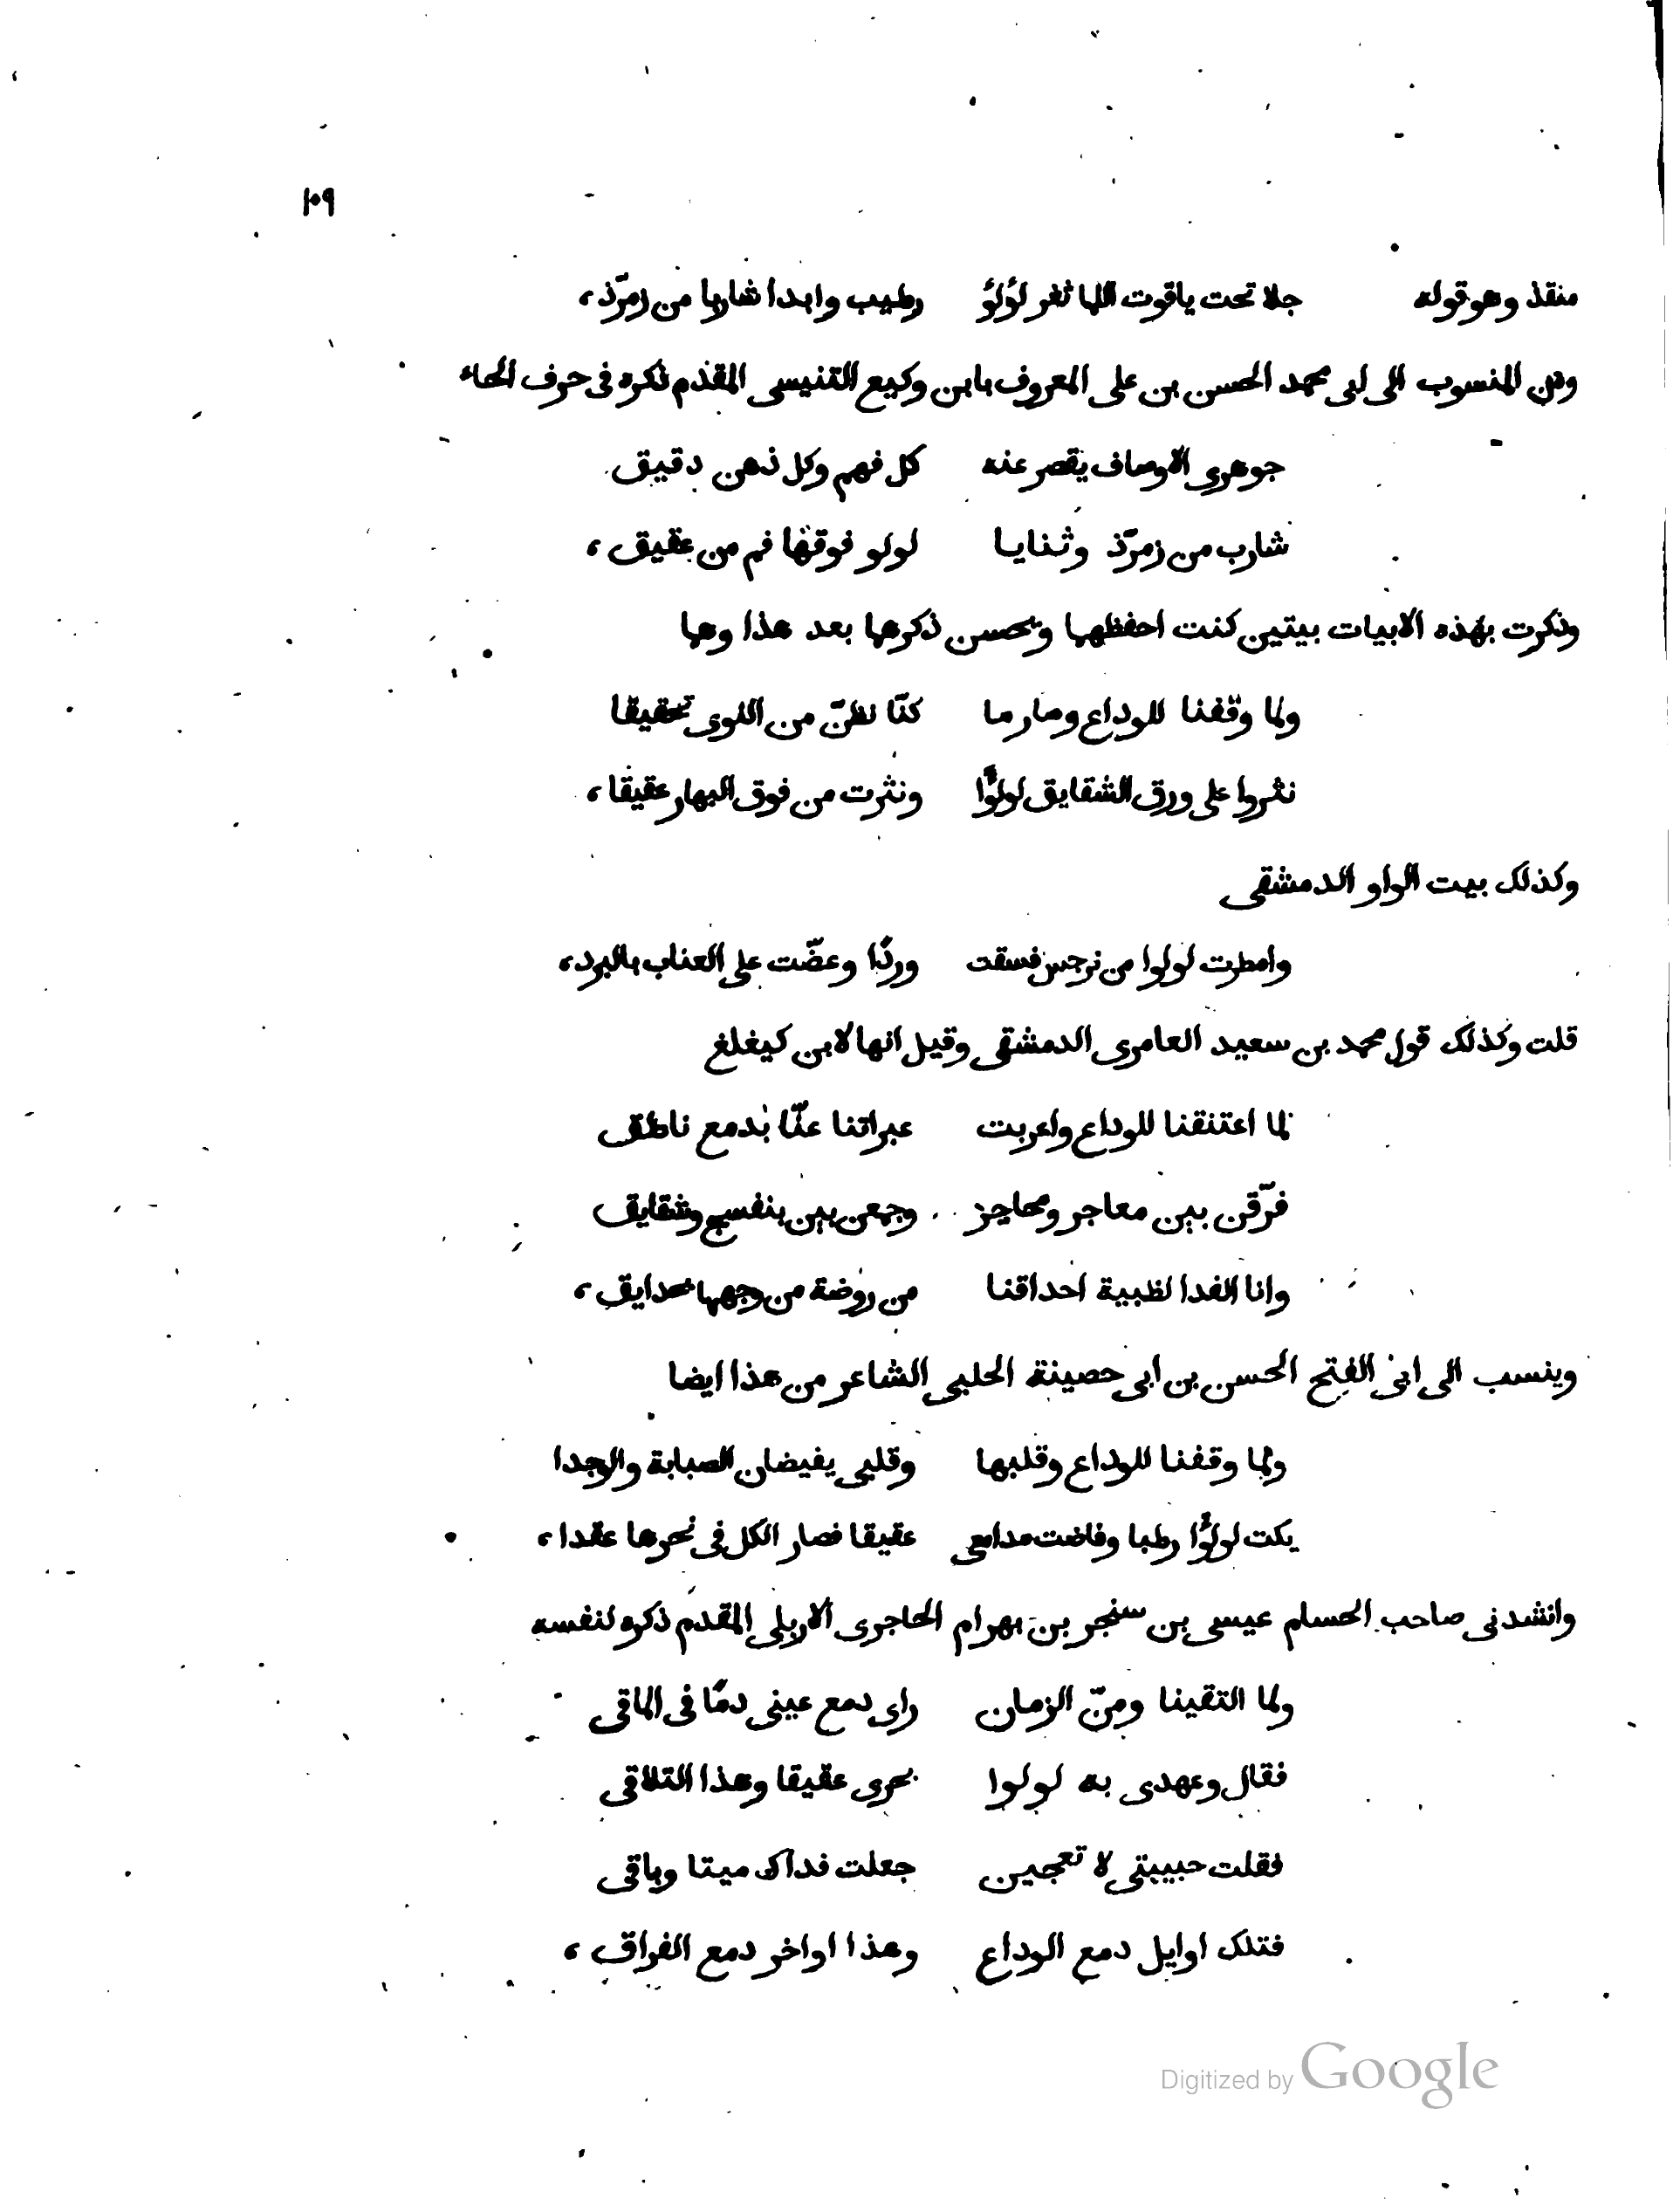 ١٠٩
منقذ وهو قوله جلا تحت ياقوت اللما ثغر لؤلؤ رطيب وابدا شاربا من زمرّذ،
ومن المنسوب الى ابى محمد الحسن بن على المعروف بابن وكيع التنيسى المقدم ذكره فى حرف الحاء
جوهرى الاوصاف يقصر عنه كل فهم وكل ذهن دقيق
شارب من زمرّذ وثنايا لولو فوقها فم من عقيق،
وذكرت بهذه الابيات بيتين كنت احفظهما ويحسن ذكرهما بعد هذا وهما
ولما وقفنا للوداع وصار ما كنّا نظنّ من النوى تحقيقا
نثروا على ورق الشقايق لولوًا ونثرت من فوق البهار عقيقا،
وكذلك بيت الواو الدمشقى
وامطرت لولوا من نرجس فسقت وردًا وعضّت على العناب بالبرد،
قلت وكذلك قول محمد بن سعيد العامرى الدمشقى وقيل انها لابن كيغلغ
لما اعتنقنا للوداع واعربت عبراتنا عنّا بدمع ناطق
فرّقن بين معاجر ومحاجز وجمعن بين بنفسج وشقايق
وانا الفدا لظبية احداقنا من روضة من وجهها حدايق،
وينسب الى ابى الفتح الحسن بن ابى حصينة الحلبى الشاعر من هذا ايضا
ولما وقفنا للوداع وقلبها وقلبى يفيضان الصبابة والوجدا
بكت لولؤًا رطبا وفاضت مدامعى عقيقا فصار الكل فى نحرها عقدا،
وانشدنى صاحب الحسام عيسى بن سنجر بن بهرام الحاجرى الاربلى المقدم ذكره لنفسه
ولما التقينا ومنّ الزمان راى دمع عينى دمًا فى الماقى
فقال وعهدى به لولوا يجرى عقيقا وهذا التلاقى
فقلت حبيبتى لا تعجبين جعلت فداك ميتا وباقى
فتلك اوايل دمع الوداع وهذا اواخر دمع الفراق،
Digitized by Google